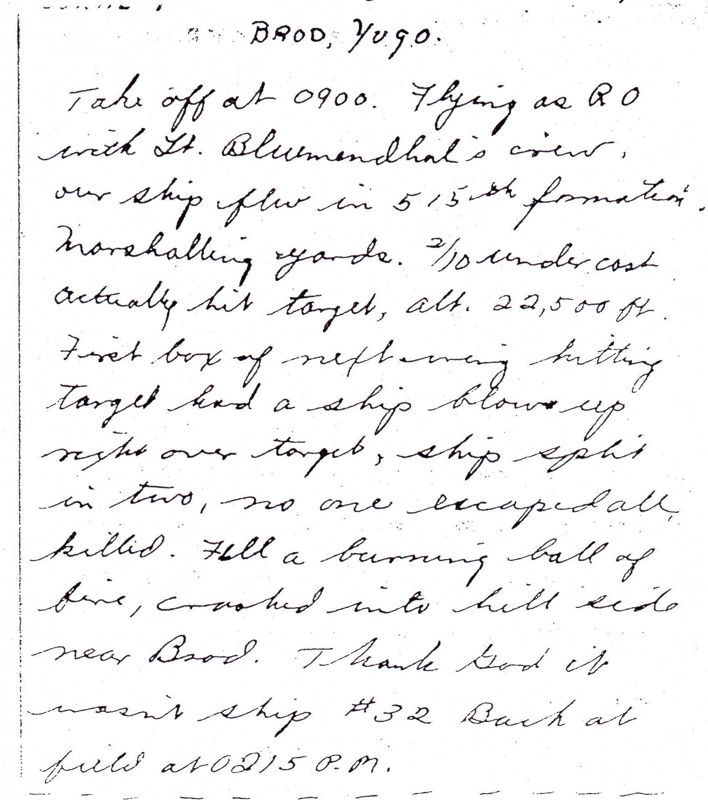 BROD, Yugo.
Take off at 0900. Flying as RO
with Lt. Blumendhal's crew,
our ship flew in 515th formation.
Marshalling yards. 2/10 under cast
actually hit target, alt. 22,500 ft.
First box of next wing hitting
target had a ship blow up
right over target, ship split
in two, no one escaped all
killed. Fell a burning ball of
fire, crashed into hill side
near Brod. Thank God it
wasn't ship #32 Back at
field at 0215 P.M.